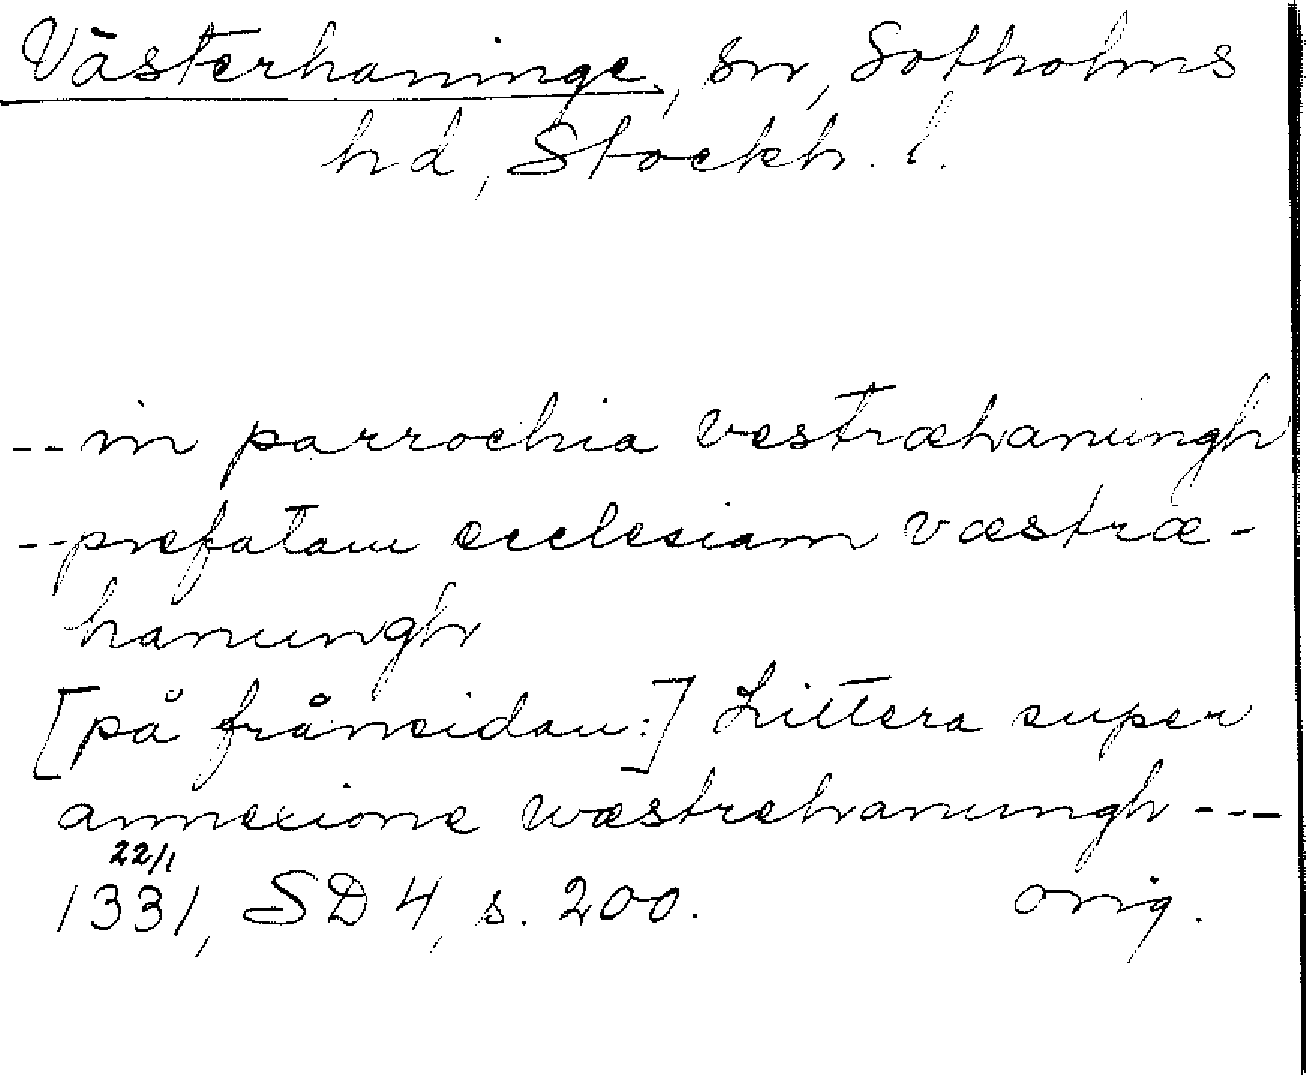 Västerhaninge, sn, Sotholms
hd, Stockh. l.
--in parrochia vestræhanungh
--prefatam ecclesiam væstræ-
hanungh
[på frånsidan:] Littera super
annexione wæstrehanungh ---
22/1
1331, SD 4, s. 200. orig.